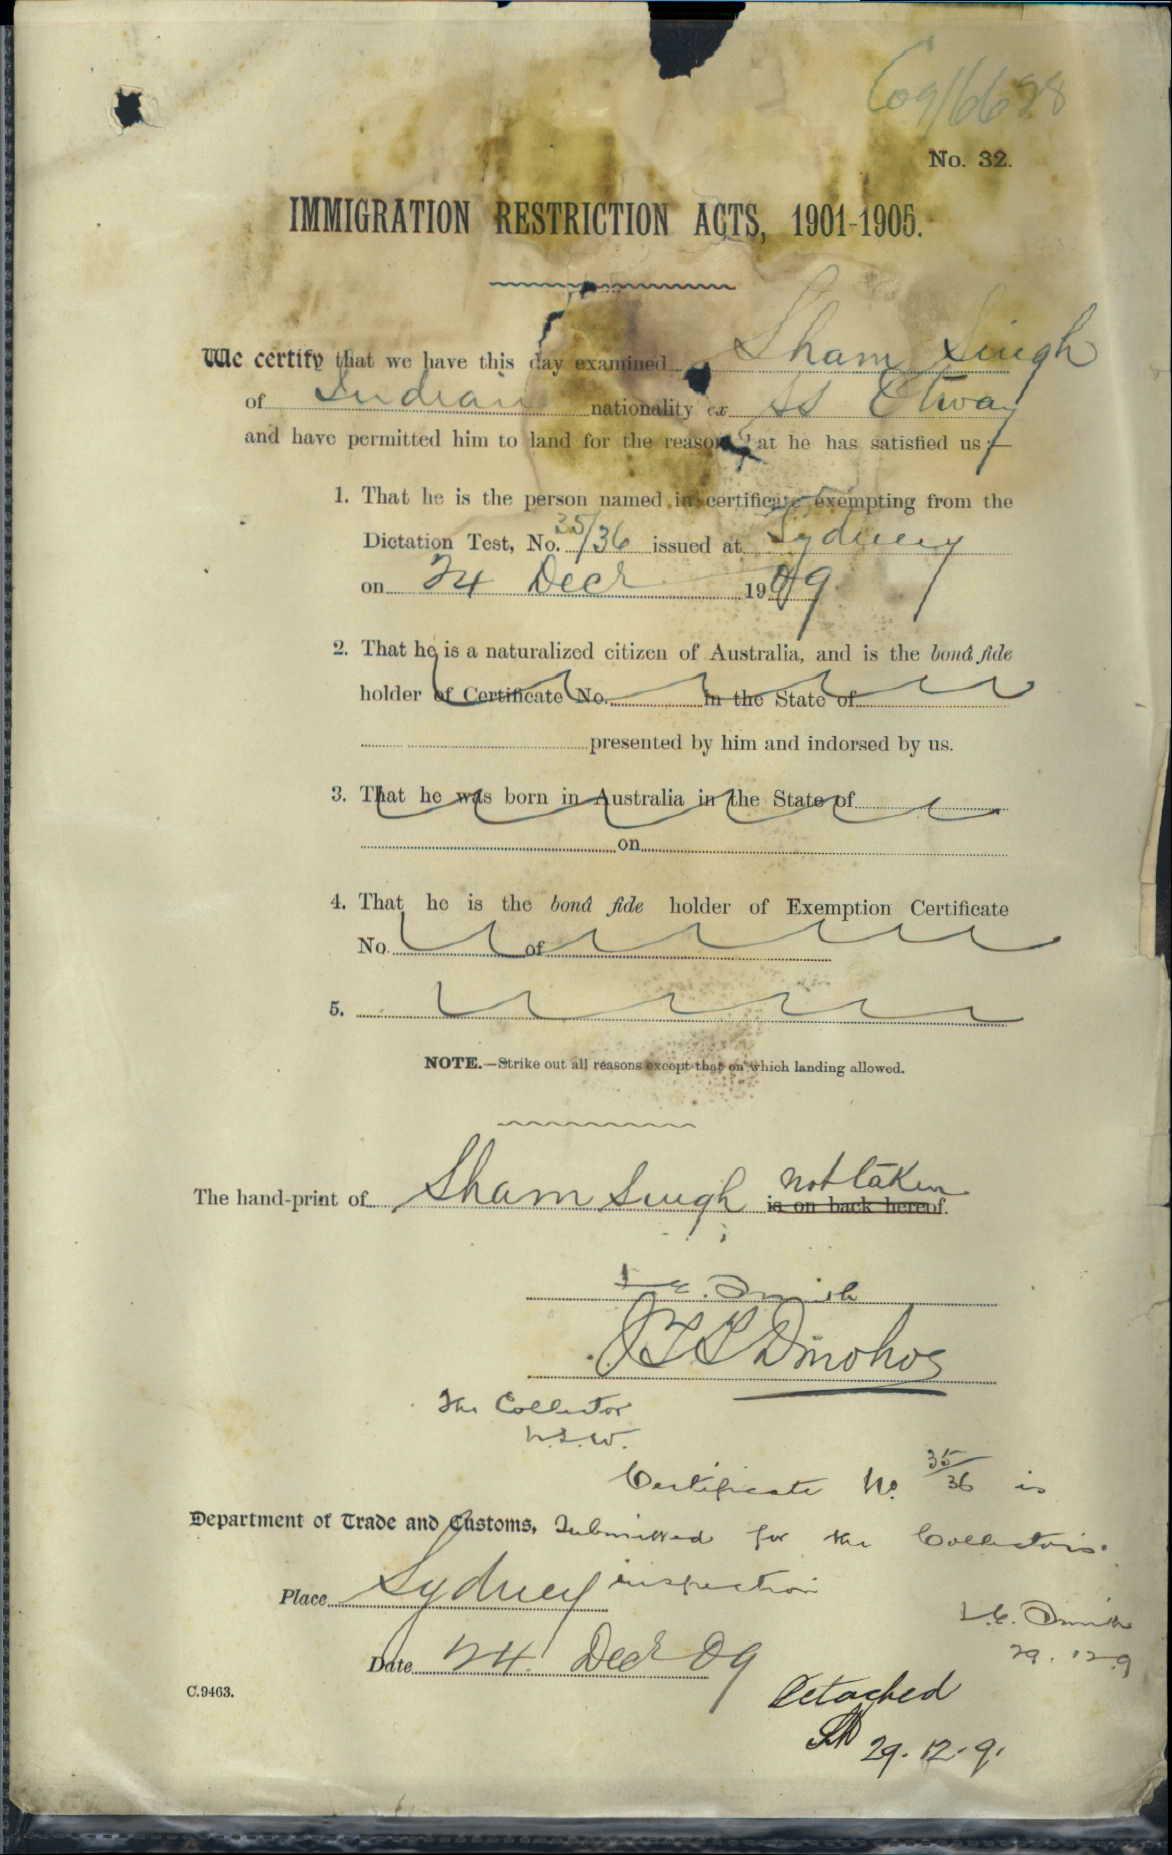 C09/6628
No. 32.
IMMIGRATION RESTRICTION ACTS, 1901-1905.
We certify that we have this day examined Sham Singh
of Indian nationality ex SS Otway
and have permitted him to land for the reason that he has satisfied us:—
1. That he is the person named in certificate exempting from the
Dictation Test, No. 35/36 issued at Sydney
on 24 Decr 1909
2. That he is a naturalized citizen of Australia, and is the bonâ fide
holder of Certificate No. in the State of
presented by him and indorsed by us.
3. That he was born in Australia in the State of
on
4. That he is the bonâ fide holder of Exemption Certificate
No. of
5.
NOTE.—Strike out all reasons except that on which landing allowed.
not taken
The hand-print of Sham Singh is on back hereof.
Donohoe
The Collector
N.S.W.
Certificate No. 35/36 is
Department of Trade and Customs, Submitted for the Collector's
inspection
Place Sydney
Date 24 Decr 09
29.12.9
C.9463.
Detached
29.12.9.